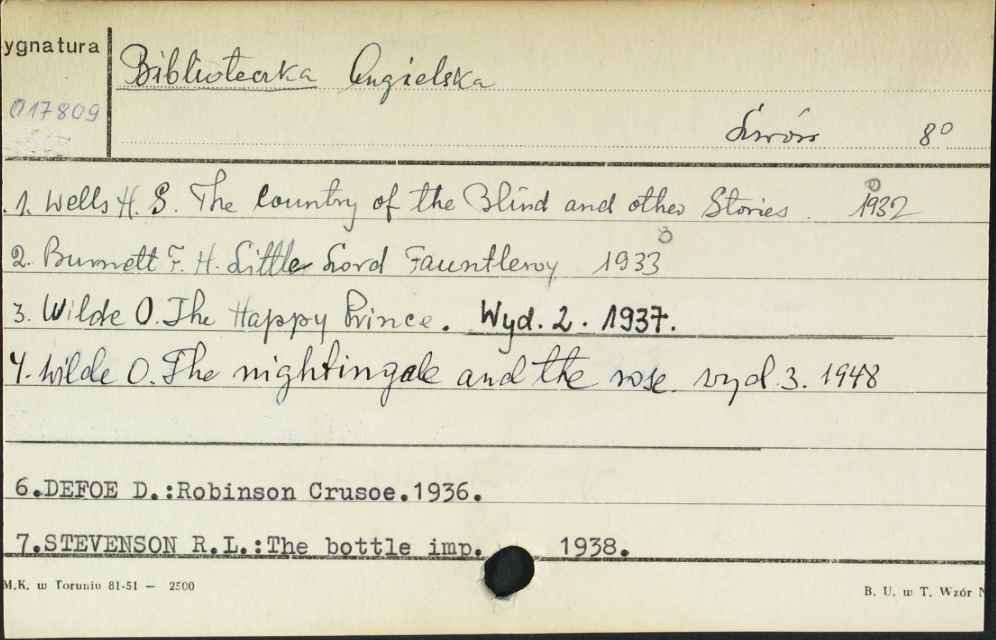 ygnatura
Biblioteczka Angielska
017809
Lwów 8°
1. Wells H. G. The Country of the Blind and other Stories. 1932
2. Burnett F. H. Little Lord Fauntleroy 1933
3. Wilde O. The Happy Prince. Wyd. 2. 1937.
4. Wilde O. The nightingale and the rose. wyd. 3. 1948
6.DEFOE D.:Robinson Crusoe.1936.
7.STEVENSON R.L.:The bottle imp. 1938.
M.K. w Toruniu 81-51 — 2500
B. U. w T. Wzór N